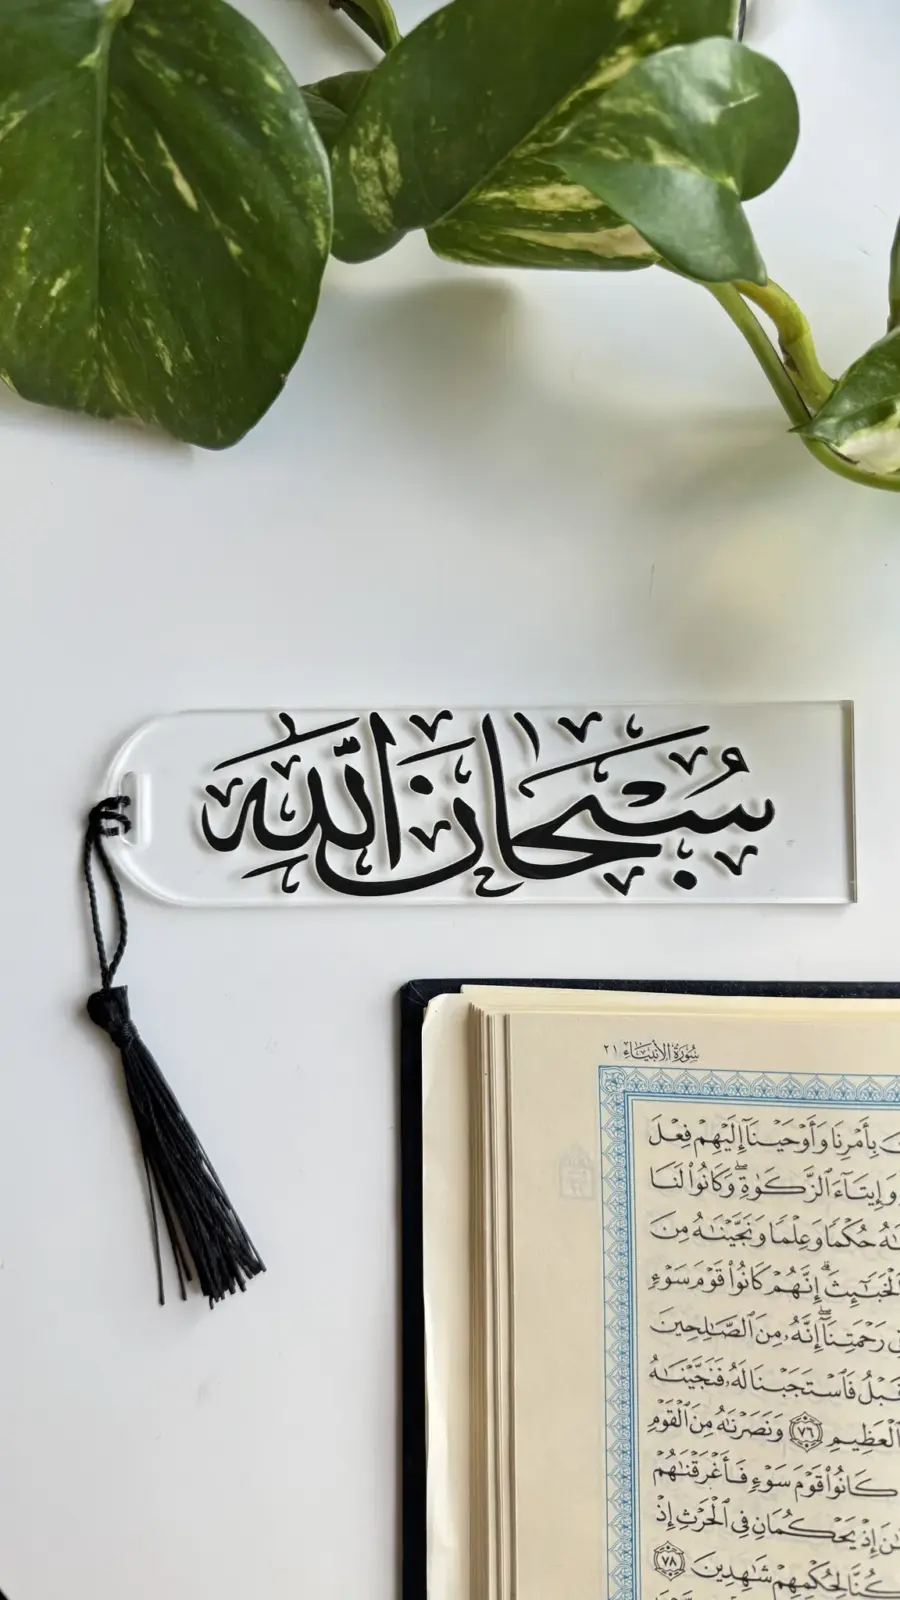 سُبْحَانَ اللَّهِ
سُورَةُ الأَنبِيَاء ٢١
بِأَمْرِنَا وَأَوْحَيْنَآ إِلَيْهِمْ فِعْلَ
وَإِيتَآءَ ٱلزَّكَوٰةِ ۖ وَكَانُوا۟ لَنَا
حُكْمًا وَعِلْمًا وَنَجَّيْنَٰهُ مِنَ
ٱلْخَبَٰٓئِثَ ۗ إِنَّهُمْ كَانُوا۟ قَوْمَ سَوْءٍ
رَحْمَتِنَآ ۖ إِنَّهُۥ مِنَ ٱلصَّٰلِحِينَ
قَبْلُ فَٱسْتَجَبْنَا لَهُۥ فَنَجَّيْنَٰهُ
ٱلْعَظِيمِ ٧٦ وَنَصَرْنَٰهُ مِنَ ٱلْقَوْمِ
كَانُوا۟ قَوْمَ سَوْءٍ فَأَغْرَقْنَٰهُمْ
إِذْ يَحْكُمَانِ فِى ٱلْحَرْثِ إِذْ
كُنَّا لِحُكْمِهِمْ شَٰهِدِينَ ٧٨